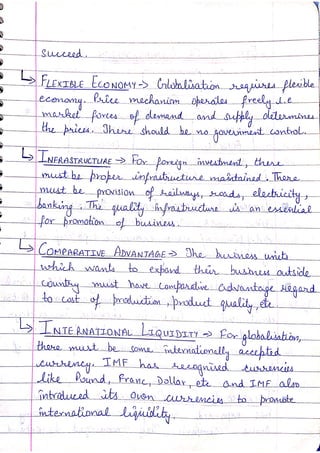 succeed.
↳ FLEXIBLE ECONOMY → Globalisation requires flexible
economy. Price mechanism operates freely i.e
market forces of demand and supply determines
the prices. There should be no government control.
↳ INFRASTRUCTURE → For foreign investment, there
must be proper infrastructure maintained. There
must be provision of railways, roads, electricity,
banking. The quality infrastructure is an essential
for promotion of business.
↳ COMPARATIVE ADVANTAGE → The business units
which wants to expand their business outside
country must have comparative advantage regard
to cost of production, product quality, etc.
↳ INTERNATIONAL LIQUIDITY → For globalisation,
there must be some internationally accepted
currency. IMF has recognised currencies
like Pound, Franc, Dollar, etc and IMF also
introduced its own currencies to promote
international liquidity.